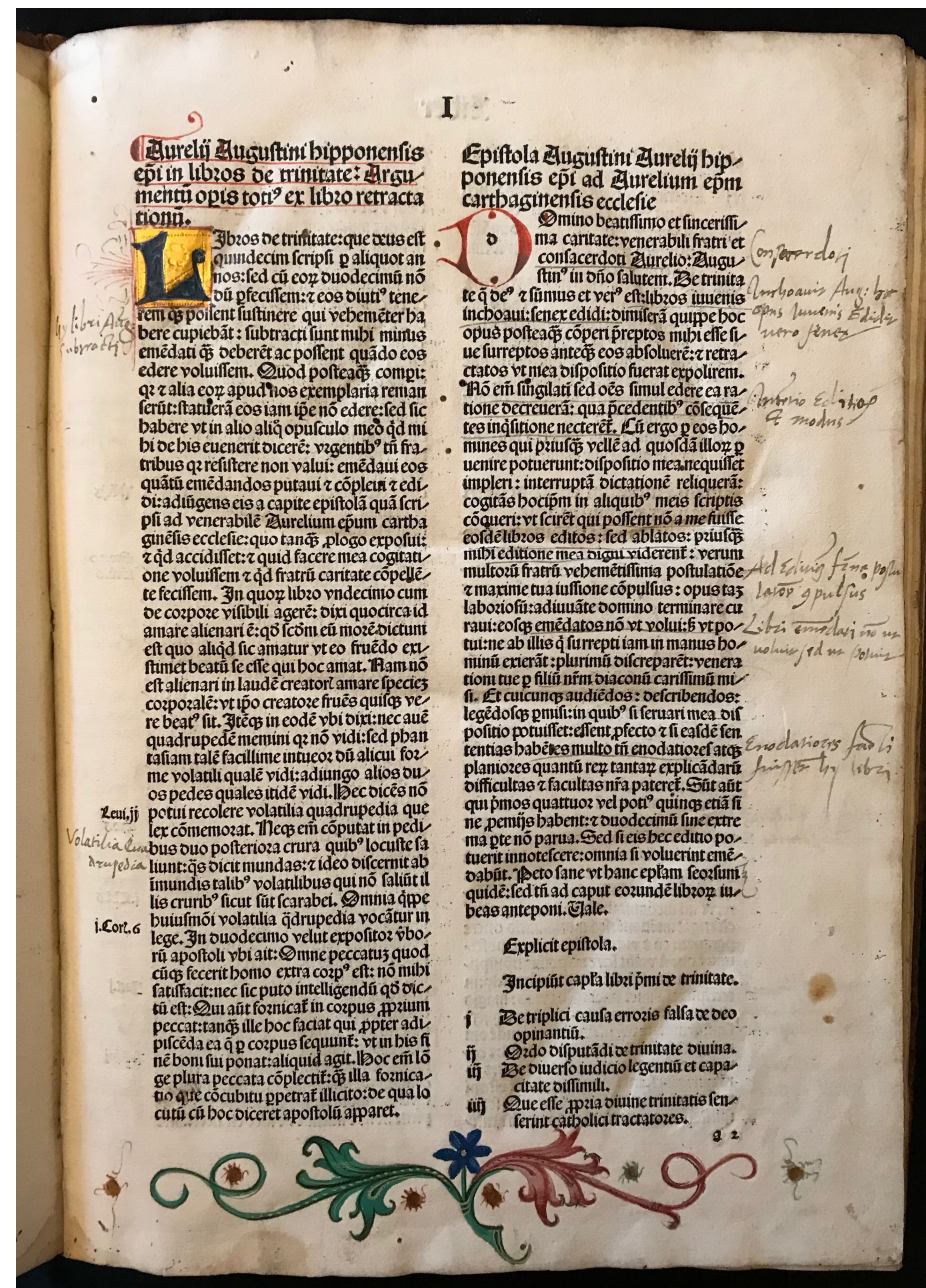 I
Aurelij Augustini hipponensis
ep̄i in libros de trinitate: Argu⸗
mentū opīs totiꝰ ex libro retracta
tionū.
LIbros de trinitate: que deus est
quindecim scripsi ꝑ aliquot an
nos: sed cū eoꝝ duodecimū nō
dū ꝑfecissem: ⁊ eos diutiꝰ tene⸗
rem ꝗ̄ possent sustinere qui vehemēter ha
bere cupiebāt: subtracti sunt mihi minus
emēdati ꝗ̄ꝫ deberēt ac possent quādo eos
edere voluissem. Quod posteaꝗ̄ꝫ comꝑi:
qꝛ ⁊ alia eoꝝ apud nos exemplaria reman
serūt: statuerā eos iam ip̄e nō edere: sed sic
habere vt in alio aliq̄ opusculo meo qd̄ mi
hi de his euenerit dicerē: vrgentibꝰ tn̄ fra⸗
tribus qꝛ resistere non valui: emēdaui eos
quātū emēdandos putaui ⁊ cōpleui ⁊ edi⸗
di: adiūgens eis a capite epistolā quā scri⸗
psi ad venerabilē Aurelium ep̄um cartha
ginēsis ecclesie: quo tanꝗ̄ꝫ ꝓlogo exposui:
⁊ qd̄ accidisset: ⁊ quid facere mea cogitati⸗
one voluissem ⁊ qd̄ fratrū caritate cōpellē⸗
te fecissem. In quoꝝ libro vndecimo cum
de corpore visibili agerē: dixi quocirca id
amare alienari ē: qd̄ scd̄m eū morē dictum
est quo aliqd̄ sic amatur vt eo fruēdo exi⸗
stimet beatū se esse qui hoc amat. Nam nō
est alienari in laudē creatoꝛꝭ amare speciez
corporalē: vt ip̄o creatore fruēs quisqꝫ ve⸗
re beatꝰ sit. Itēqꝫ in eodē vbi dixi: nec auē
quadrupedē memini qꝛ nō vidi: sed phan
tasiam talē facillime intueor dū alicui for⸗
me volatili qualē vidi: adiungo alios du⸗
os pedes quales itidē vidi. Hec dicēs nō
potui recolere volatilia quadrupedia que
lex cōmemorat. Neqꝫ em̄ cōputat in pedi⸗
bus duo posteriora crura quibꝰ locuste sa
liunt: q̄s dicit mundas: ⁊ ideo discernit ab
īmundis talibꝰ volatilibus qui nō saliūt il
lis cruribꝰ sicut sūt scarabei. Omnia q̄ppe
huiusmōi volatilia q̄drupedia vocātur in
lege. In duodecimo velut expositor v̄bo⸗
rū apostoli vbi ait: Omne peccatuꝫ quod
cūqꝫ fecerit homo extra corpꝰ est: nō mihi
satisfacit: nec sic puto intelligendū qd̄ dic⸗
tū est: Qui aūt fornicat̄ in corpus ꝓprium
peccat: tanꝗ̄ꝫ ille hoc faciat qui ꝓpter adi⸗
piscēda ea q̄ ꝑ corpus sequunt̄: vt in his fi
nē boni sui ponat: aliquid agit. Hoc em̄ lō
ge plura peccata cōplectit̄: ꝗ̄ꝫ illa fornica⸗
tio que cōcubitu ꝑpetrat̄ illicito: de qua lo
cutū cū hoc diceret apostolū apparet.
Leui.ij
Volatilia Qua
drupedia
j.Cort.6
Epistola Augustini Aurelij hip⸗
ponensis ep̄i ad Aurelium ep̄m
carthaginensis ecclesie
DOmino beatissimo et sincerissi⸗
ma caritate: venerabili fratri et
consacerdoti Aurelio: Augu⸗
stinꝰ in dn̄o salutem. De trinita
te q̄ deꝰ ⁊ sūmus et verꝰ est: libros iuuenis
inchoaui: senex edidi: dimiserā quippe hoc
opus posteaꝗ̄ꝫ cōperi p̄reptos mihi esse si⸗
ue surreptos anteꝗ̄ꝫ eos absoluerē: ⁊ retra⸗
ctatos vt mea dispositio fuerat expolirem.
Nō em̄ singilati sed oēs simul edere ea ra⸗
tione decreuerā: qua p̄cedentibꝰ cōsequē⸗
tes inq̄sitione necteret̄. Cū ergo ꝑ eos ho⸗
mines qui priusꝗ̄ꝫ vellē ad quosdā illoꝝ ꝑ
uenire potuerunt: dispositio mea nequisset
impleri: interruptā dictationē reliquerā:
cogitās hocip̄m in aliquibꝰ meis scriptis
cōqueri: vt scirēt qui possent nō a me fuisse
eosdē libros editos: sed ablatos: priusꝗ̄ꝫ
mihi editione mea digni viderent̄: verum
multorū fratrū vehemētissima postulatiōe
⁊ maxime tua iussione cōpulsus: opus taꝫ
laboriosū: adiuuāte domino terminare cu
raui: eosqꝫ emēdatos nō vt volui: sꝫ vt po⸗
tui: ne ab illis q̄ surrepti iam in manus ho⸗
minū exierāt: plurimū discreparēt: venera
tioni tue ꝑ filiū nr̄m diaconū carissimū mi⸗
si. Et cuicunqꝫ audiēdos: describendos:
legēdosqꝫ ꝑmisi: in quibꝰ si seruari mea dis
positio potuisset: essent ꝓfecto ⁊ si easdē sen
tentias habētes multo tn̄ enodatiores atqꝫ
planiores quantū reꝝ tantaꝝ explicādarū
difficultas ⁊ facultas nr̄a pateret̄. Sūt aūt
qui p̄mos quattuor vel potiꝰ quinqꝫ etiā si
ne ꝓemijs habent: ⁊ duodecimū sine extre
ma ꝑte nō parua. Sed si eis hec editio po⸗
tuerit innotescere: omnia si voluerint emē⸗
dabūt. Peto sane vt hanc ep̄lam seorsum
quidē: sed tn̄ ad caput eorundē libroꝝ iu⸗
beas anteponi. Uale.
Explicit epistola.
Incipiūt capl̄a libri p̄mi de trinitate.
j De triplici causa erroris falsa de deo
opinantiū.
ij Ordo disputādi de trinitate diuina.
iij De diuerso iudicio legentiū et capa⸗
citate dissimili.
iiij Que esse ꝓpria diuine trinitatis sen⸗
serint catholici tractatores.
a 2